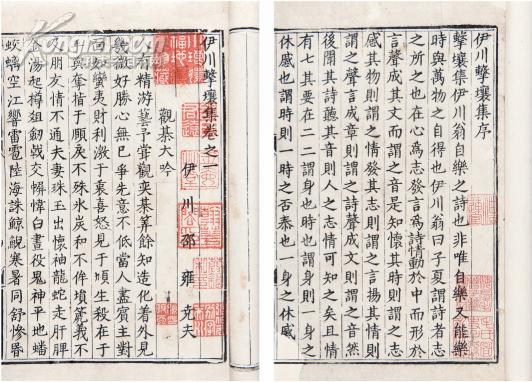 伊川擊壤集序
擊壤集伊川翁自樂之詩也非唯自樂又能樂
時與萬物之自得也伊川翁曰子夏謂詩者志
之所之也在心爲志發言爲詩情動於中而形於
言聲成其文而謂之音是知懷其時則謂之志
感其物則謂之情發其志則謂之言揚其情則
謂之聲言成章則謂之詩聲成文則謂之音然
後聞其詩聽其音則人之志情可知之矣且情
有七其要在二二謂身也時也謂身則一身之
休戚也謂時則一時之否泰也一身之休戚
伊川擊壤集卷之一
伊川邵雍堯夫
觀棊大吟
人有精游藝予嘗觀奕棊筭餘知造化着外見
幾微好勝心無已爭先意不低當人盡賓主對
面如蠻夷財利激于衷喜怒見于頄生殺在于
手與奪指于頤戾不殊氷炭和不侔塤篪義不
及朋友情不通夫妻珠玉出懷袖龍蛇走肝脾
金湯起樽俎劍戟交幨幃白晝役鬼神平地蟠
蛟螭空江響雷雹陸海誅鯨鯢寒暑同舒慘昬